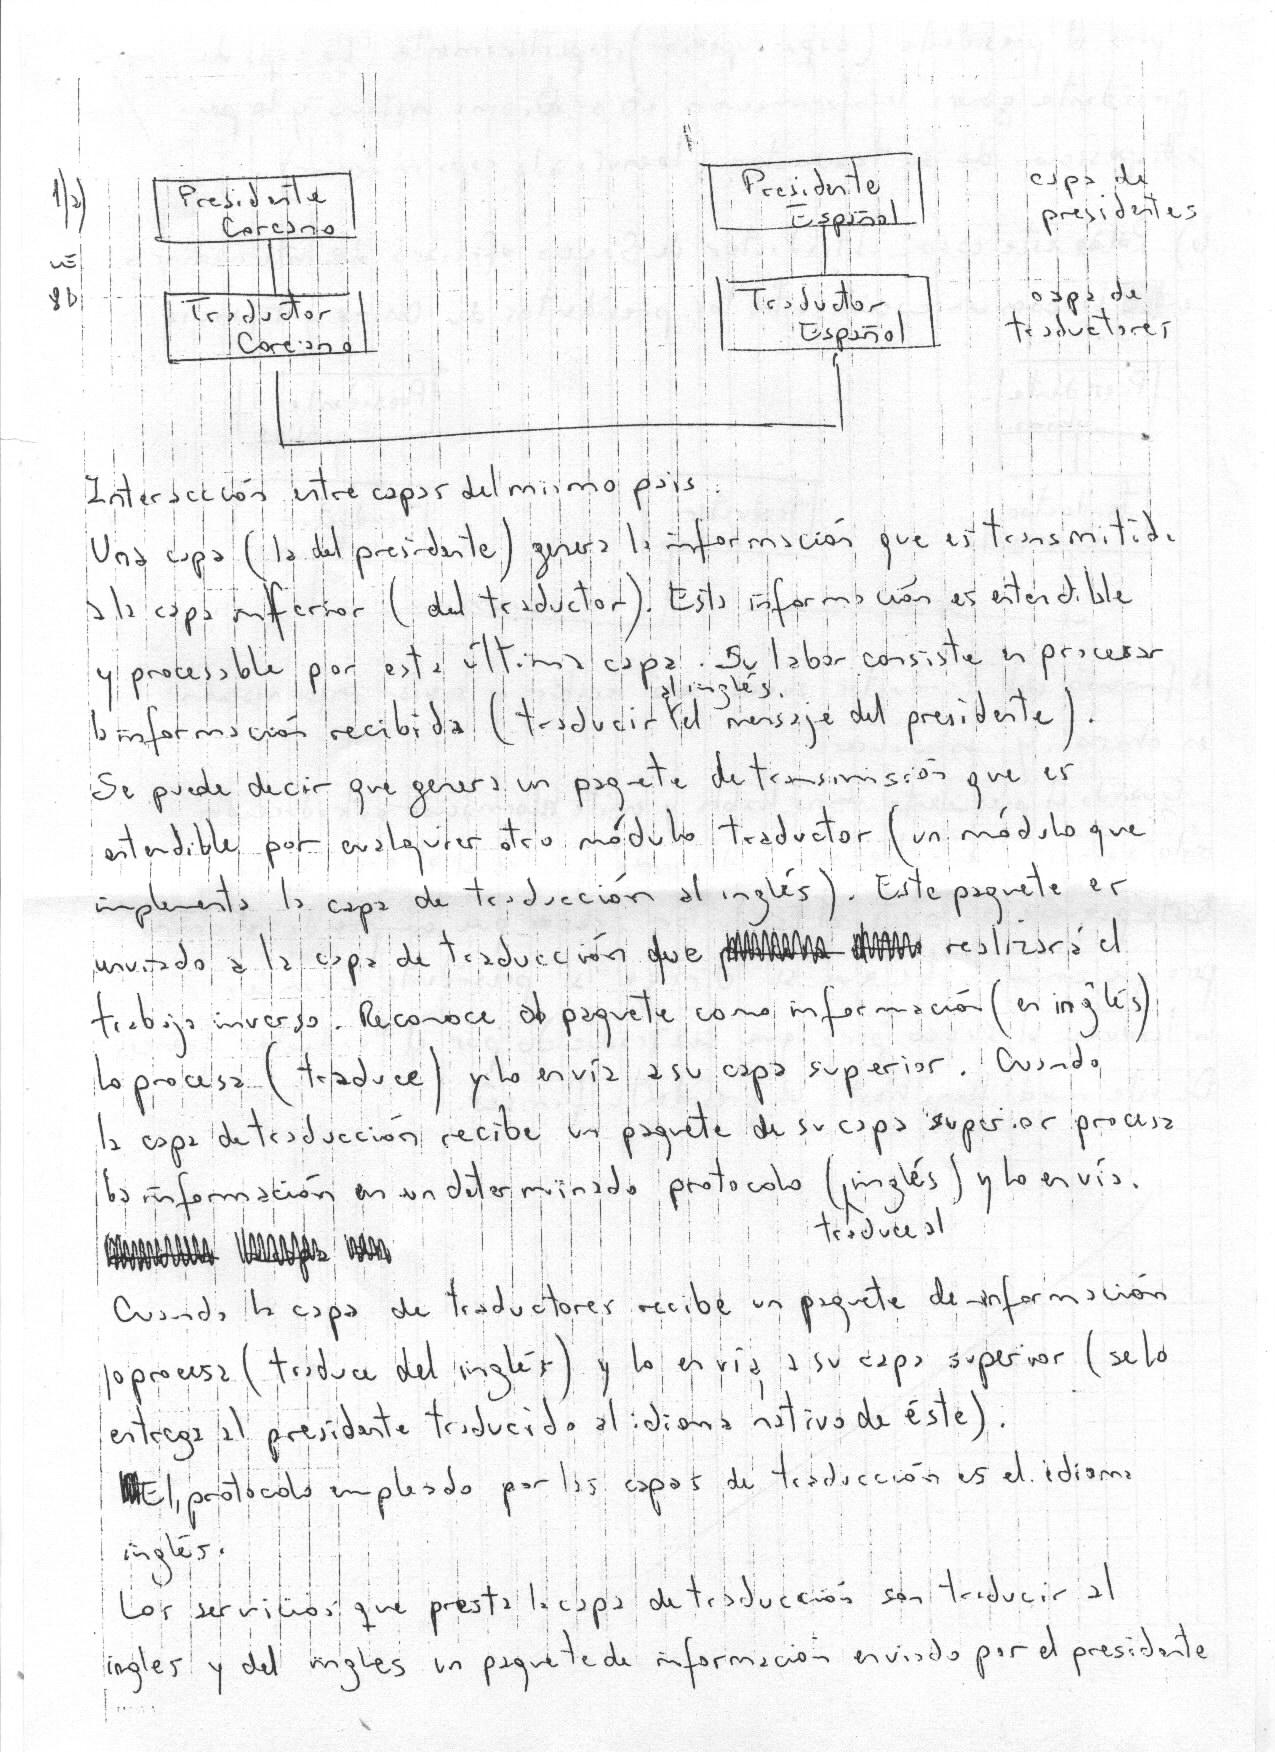 1/a)
Presidente
Coreano
Presidente
Español
capa de
presidentes
Traductor
Coreano
Traductor
Español
capa de
traductores
Interacción entre capas del mismo pais:
Una capa (la del presidente) genera la información que es transmitida
a la capa inferior (del traductor). Esta información es entendible
y procesable por esta última capa. Su labor consiste en procesar
al inglés
la información recibida (traducir el mensaje del presidente).
Se puede decir que genera un paquete de transmisión que es
entendible por cualquier otro módulo traductor (un módulo que
implementa la capa de traducción al inglés). Este paquete es
enviado a la capa de traducción que realizará el
trabajo inverso. Reconoce el paquete como información (en inglés)
lo procesa (traduce) y lo envía a su capa superior. Cuando
la capa de traducción recibe un paquete de su capa superior procesa
la información en un determinado protocolo (inglés) y lo envía.
traduce al
Cuando la capa de traductores recibe un paquete de información
lo procesa (traduce del inglés) y lo envía a su capa superior (se lo
entrega al presidente traducido al idioma nativo de éste).
El protocolo empleado por las capas de traducción es el idioma
inglés.
Los servicios que presta la capa de traducción son traducir al
ingles y del ingles un paquete de información enviado por el presidente